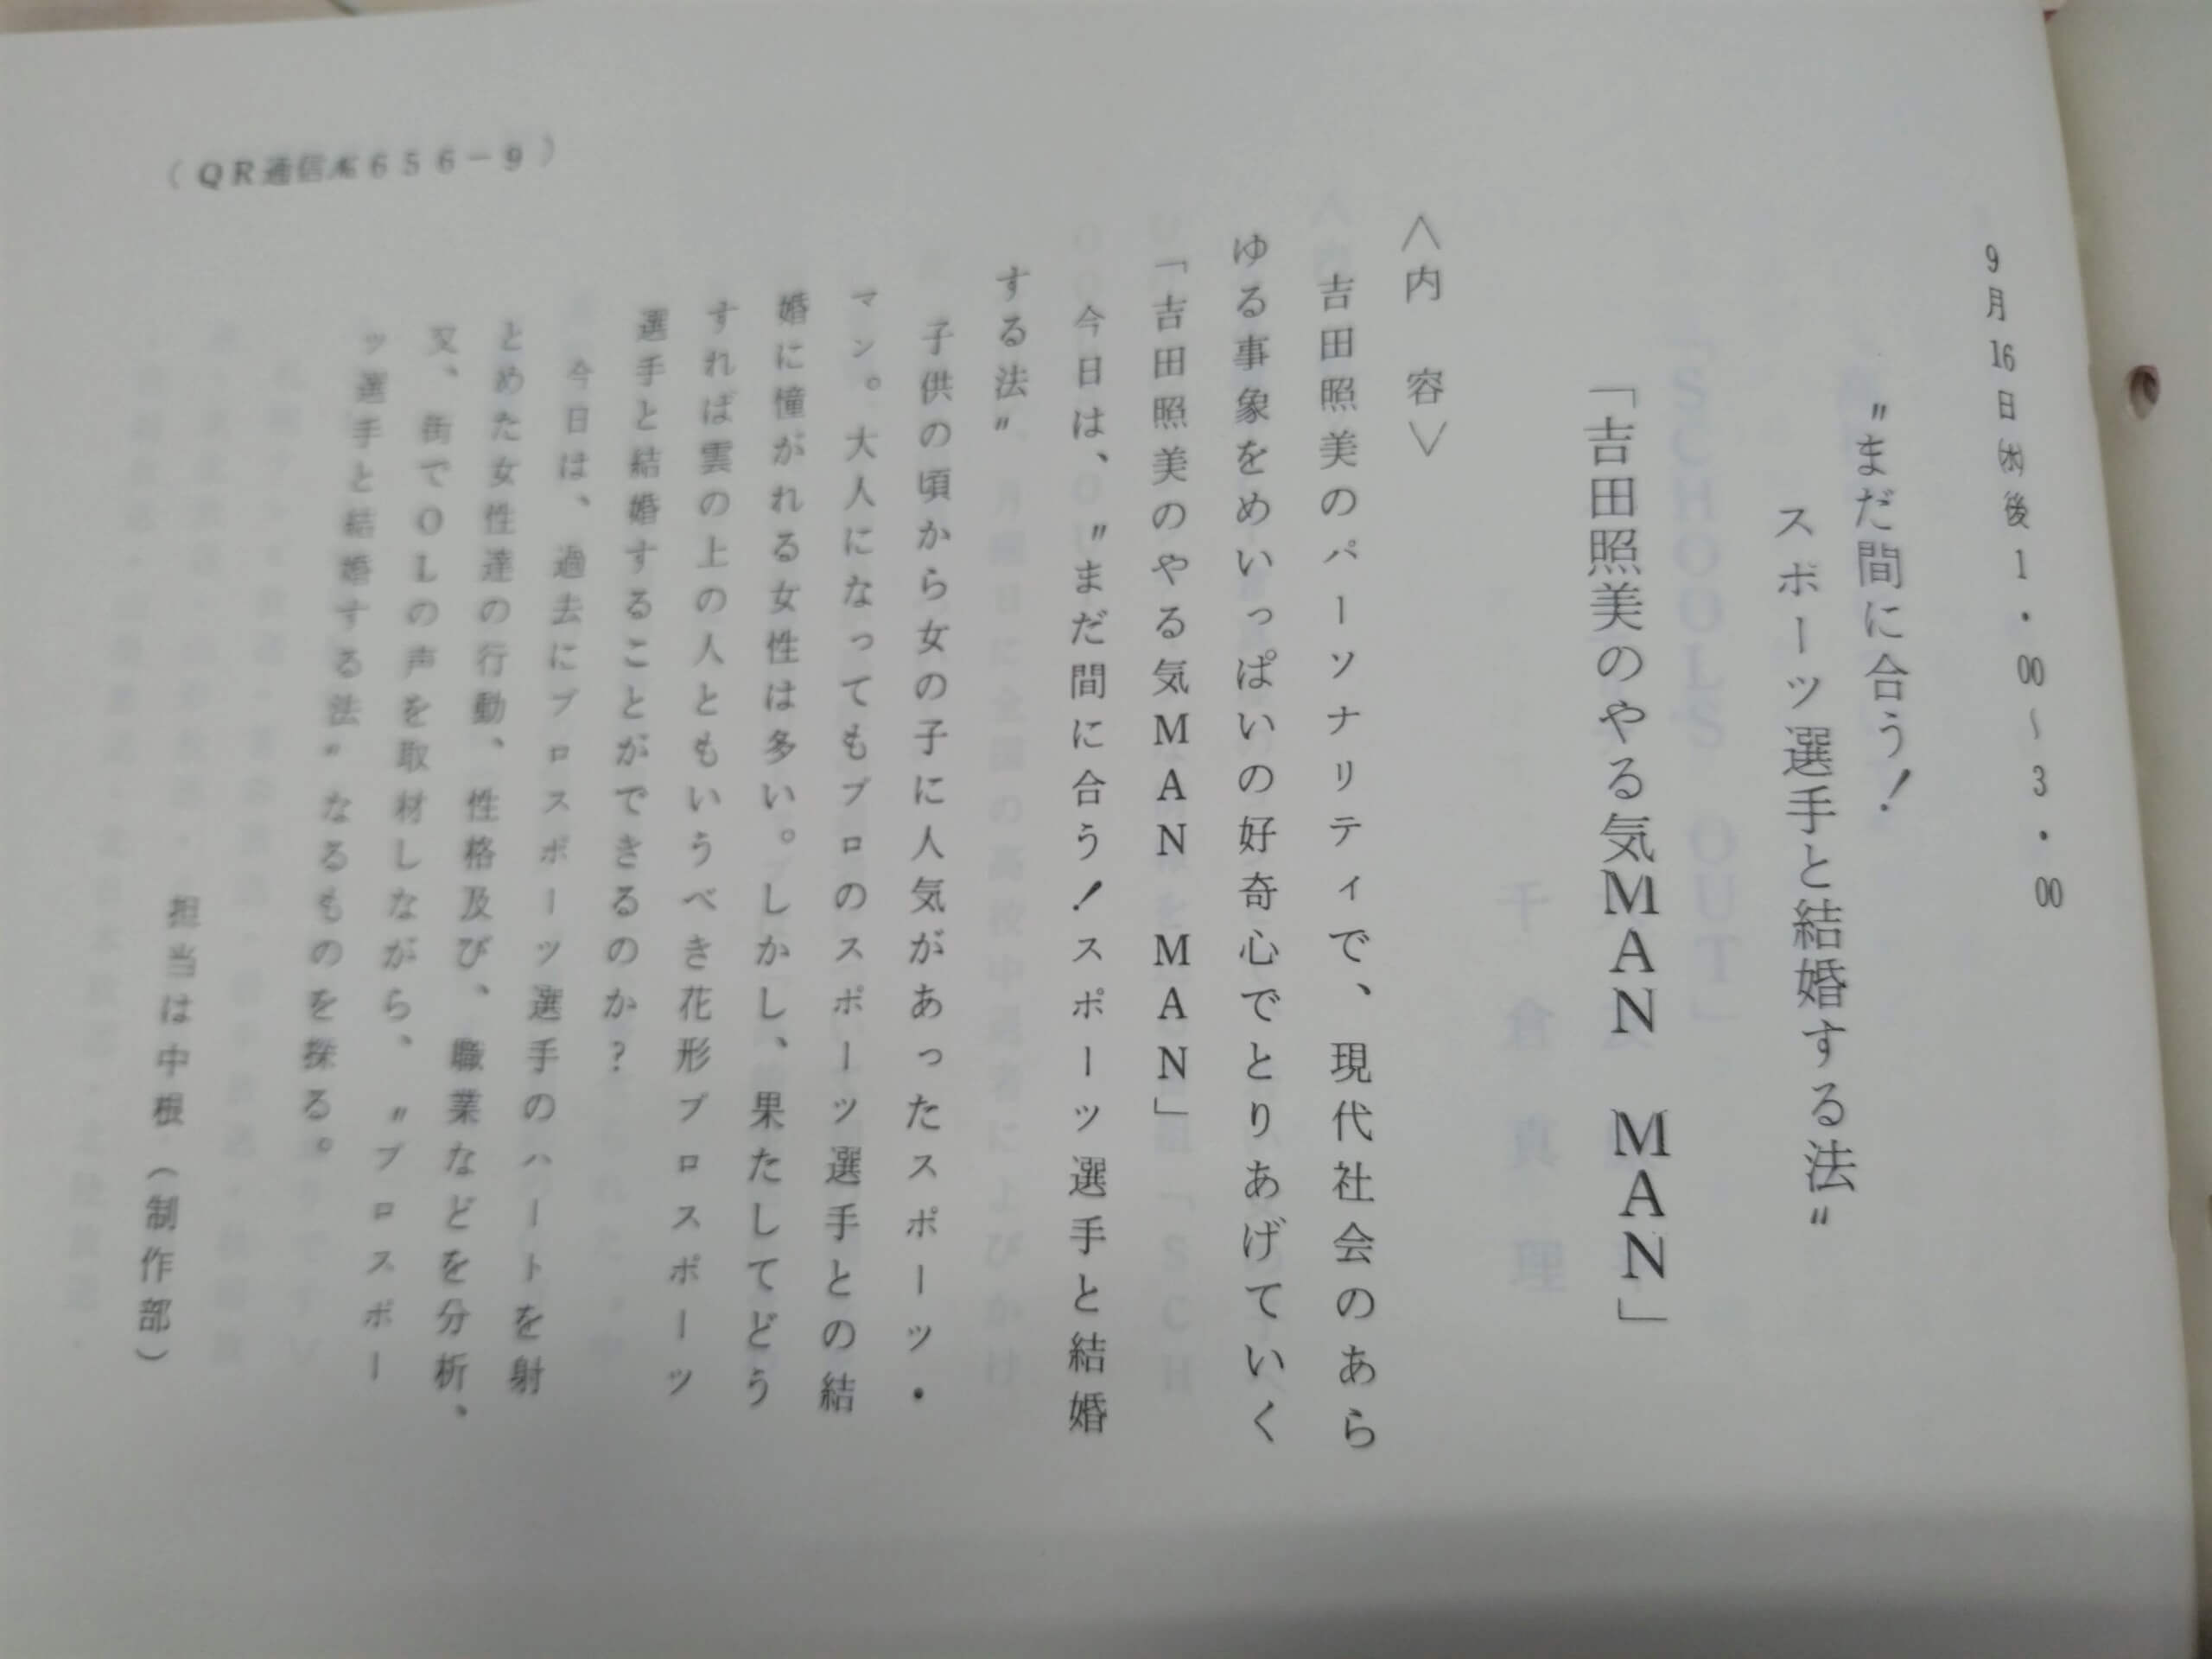 9月16日㈬後1・00〜3・00
〝まだ間に合う！
スポーツ選手と結婚する法〟
「吉田照美のやる気MAN　MAN」
＜内　容＞
吉田照美のパーソナリティで、現代社会のあら
ゆる事象をめいっぱいの好奇心でとりあげていく
「吉田照美のやる気MAN　MAN」
今日は、〝まだ間に合う！スポーツ選手と結婚
する法〟
子供の頃から女の子に人気があったスポーツ・
マン。大人になってもプロのスポーツ選手との結
婚に憧がれる女性は多い。しかし、果たしてどう
すれば雲の上の人ともいうべき花形プロスポーツ
選手と結婚することができるのか？
今日は、過去にプロスポーツ選手のハートを射
とめた女性達の行動、性格及び、職業などを分析、
又、街でOLの声を取材しながら、〝プロスポー
ツ選手と結婚する法〟なるものを探る。
担当は中根（制作部）
（QR通信№656－9）